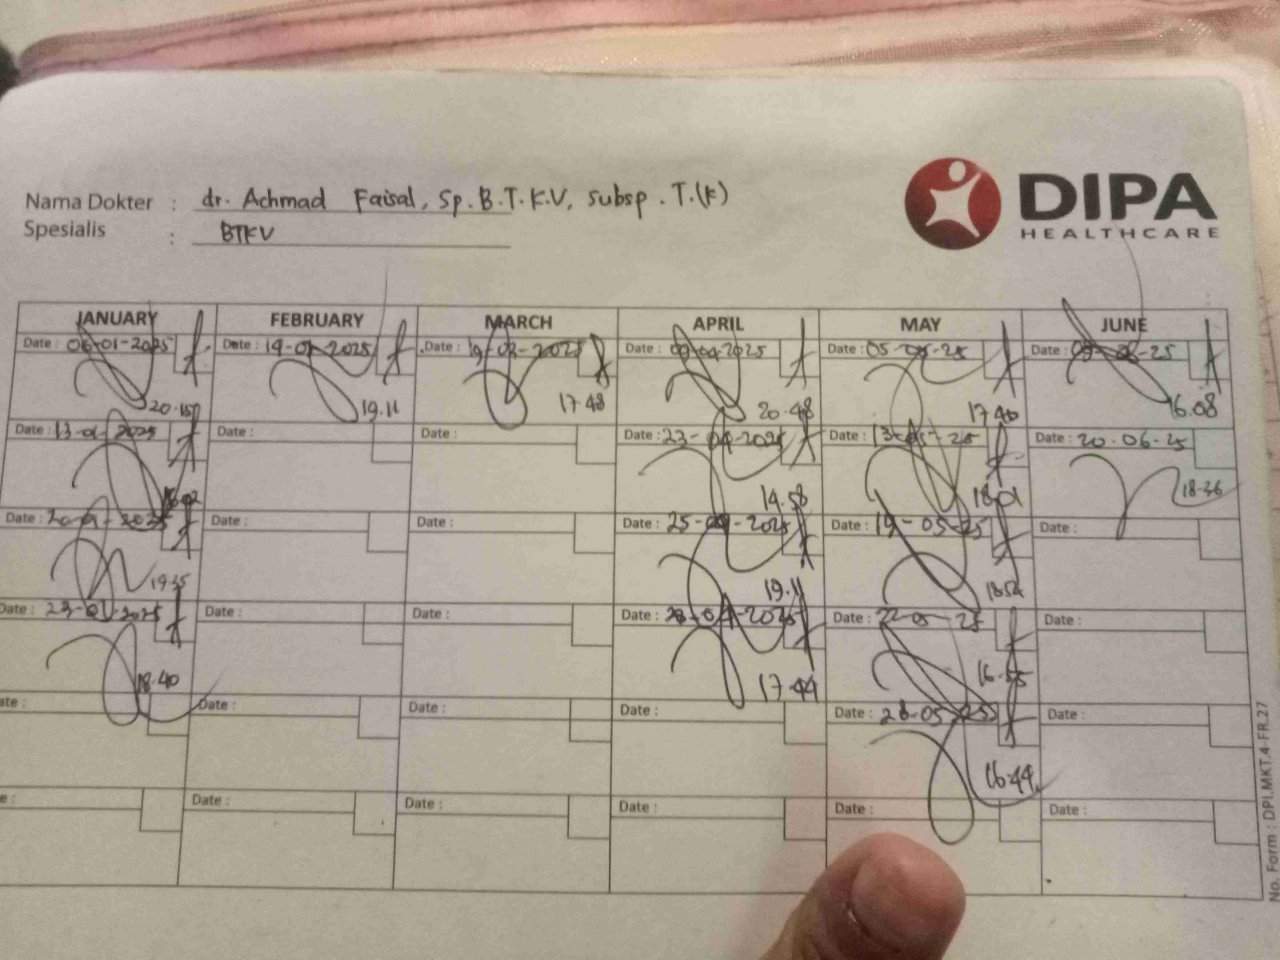 Nama Dokter : dr. Achmad Faisal, Sp.B.T.K.V, subsp. T.(K)
Spesialis : BTKV
DIPA
HEALTHCARE
JANUARY FEBRUARY MARCH APRIL MAY JUNE
Date : 06-01-2025 Date : 19-02-2025 Date : 19-03-2025 Date : 09-04-2025 Date : 05-05-25 Date : -06-25
20.15 19.11 17.48 20.48 17.40 16.08
Date : 13-01-2025 Date : Date : Date : 23-04-2025 Date : 13-05-25 Date : 20-06-25
14.58 18.01 18.36
Date : 20-01-2025 Date : Date : Date : 25-04-2025 Date : 19-05-25 Date :
19.35 19.11
Date : 23-01-2025 Date : Date : Date : 28-04-2025 Date : 22-05-25 Date :
18.40 17.44 16.55
ate : Date : Date : Date : Date : 26-05-25 Date :
16.44
e : Date : Date : Date : Date : Date :
No. Form : DPI.MKT.4-FR.27